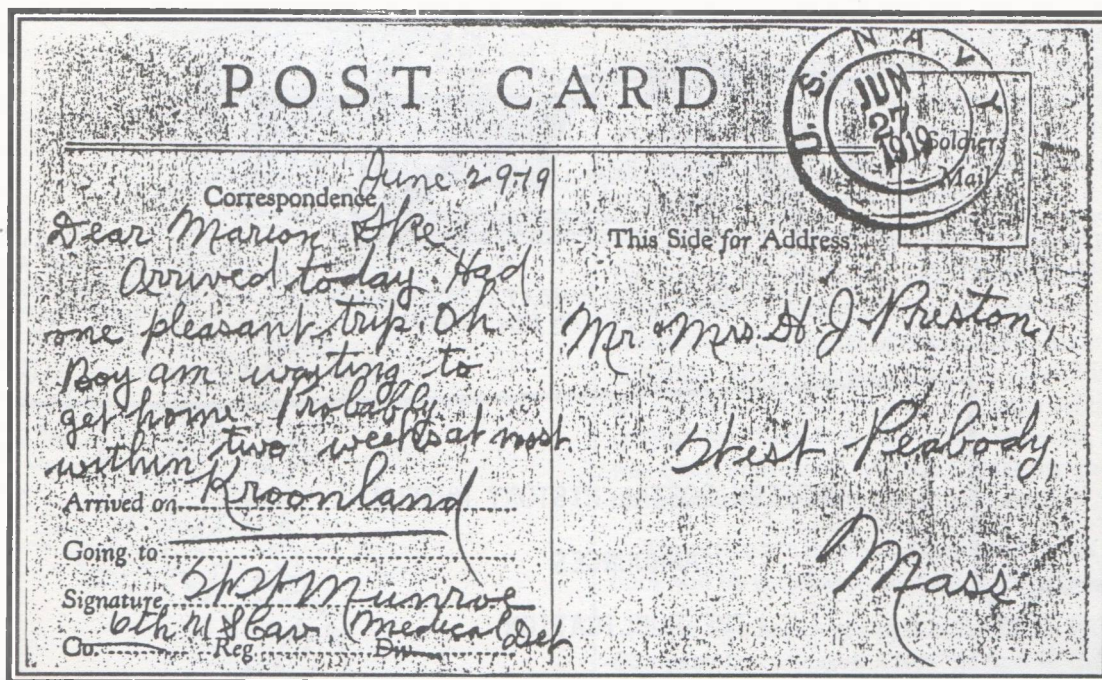 POST CARD
U.S. NAVY
JUN
27
1919
Soldiers
Mail
Correspondence
June 29-19
Dear Marion & Ike
Arrived today. Had
one pleasant trip. Oh
Boy am waiting to
get home Probably
within two weeks at most.
Arrived on Kroonland
Going to
Signature Munroe
6th U S Cav (Medical Det
Co. Reg. Div.
This Side for Address
Mr & Mrs. H. J. Preston,
West Peabody,
Mass